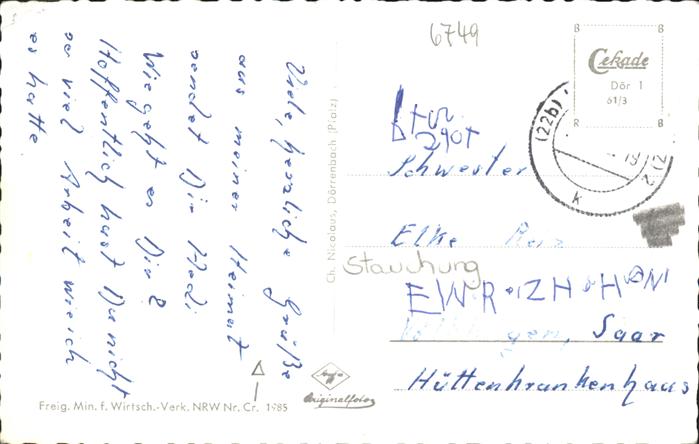 6749
Viele, herzliche Grüße
aus meiner Heimat
sendet Dir Hedi
Wie geht es Dir?
Hoffentlich hast Du nicht
so viel Arbeit wie ich
es hatte
Freig. Min. f. Wirtsch.-Verk. NRW Nr. Cr. 1985
Ch. Nicolaus, Dörrenbach (Pfalz)
Agfa
Originalfoto
B B
Cekade
Dör 1
61/3
R B
(22b)
k
Schwester
Elke
Stauchung
Saar
Hüttenkrankenhaus